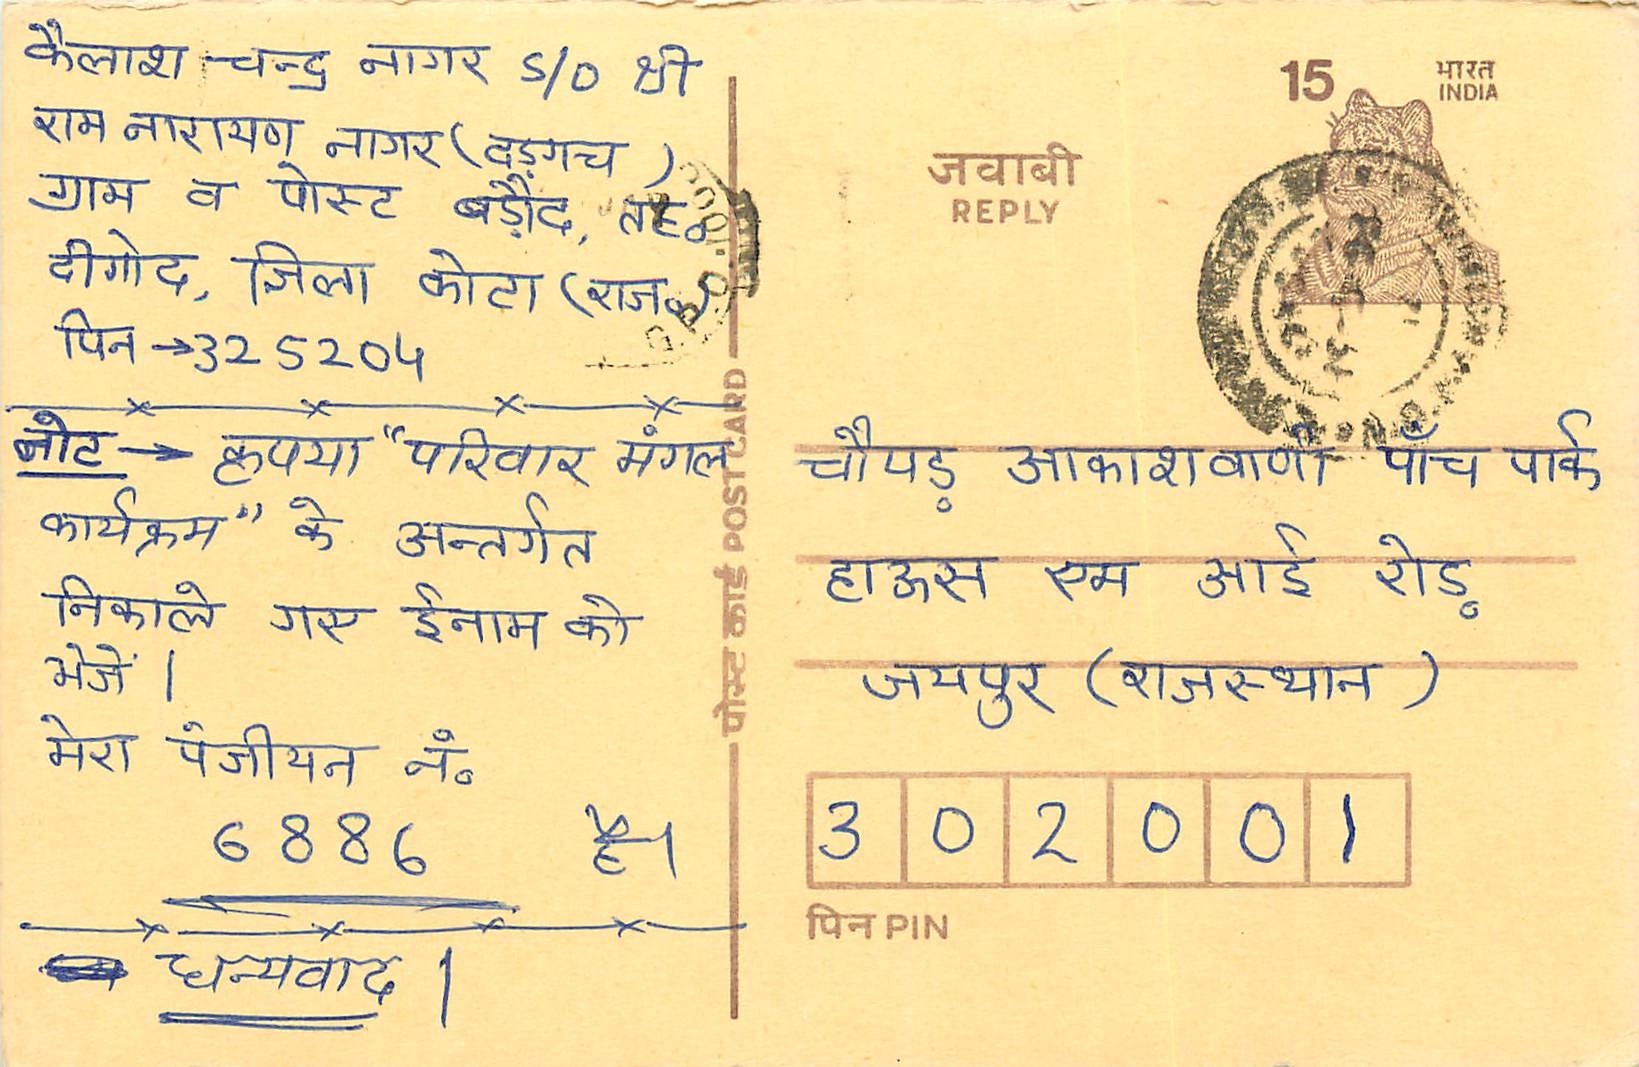 कैलाश चन्द्र नागर S/O श्री
राम नारायण नागर (दड़गच)
ग्राम व पोस्ट बड़ौद, तह॰
दीगोद, जिला कोटा (राज॰)
पिन → 325204
नोट → कृपया "परिवार मंगल
कार्यक्रम" के अन्तर्गत
निकाले गए ईनाम को
भेजें।
मेरा पंजीयन नं॰
6886 है।
धन्यवाद।
पोस्ट कार्ड POST CARD
जवाबी
REPLY
15
भारत
INDIA
चौपड़ आकाशवाणी पाँच पार्क
हाऊस एम आई रोड़
जयपुर (राजस्थान)
302001
पिन PIN